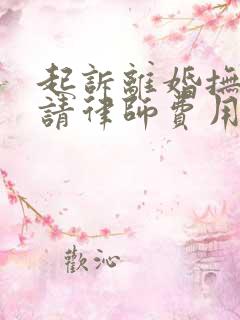 起訴離婚撫
請律師費用
歡沁